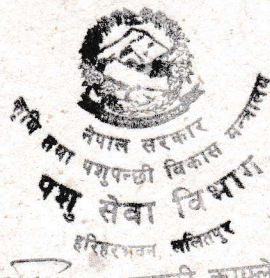 नेपाल सरकार
कृषि तथा पशुपन्छी विकास मन्त्रालय
पशु सेवा विभाग
हरिहरभवन ललितपुर